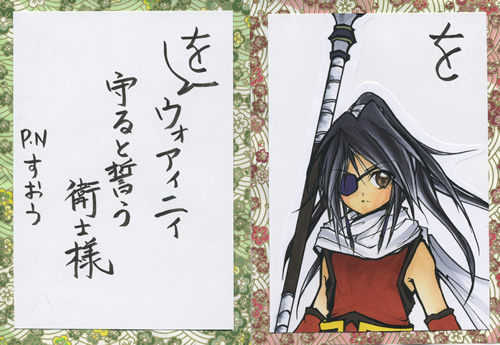 を
ウォアイニィ
守ると誓う
衛士様
P.N すおう
を